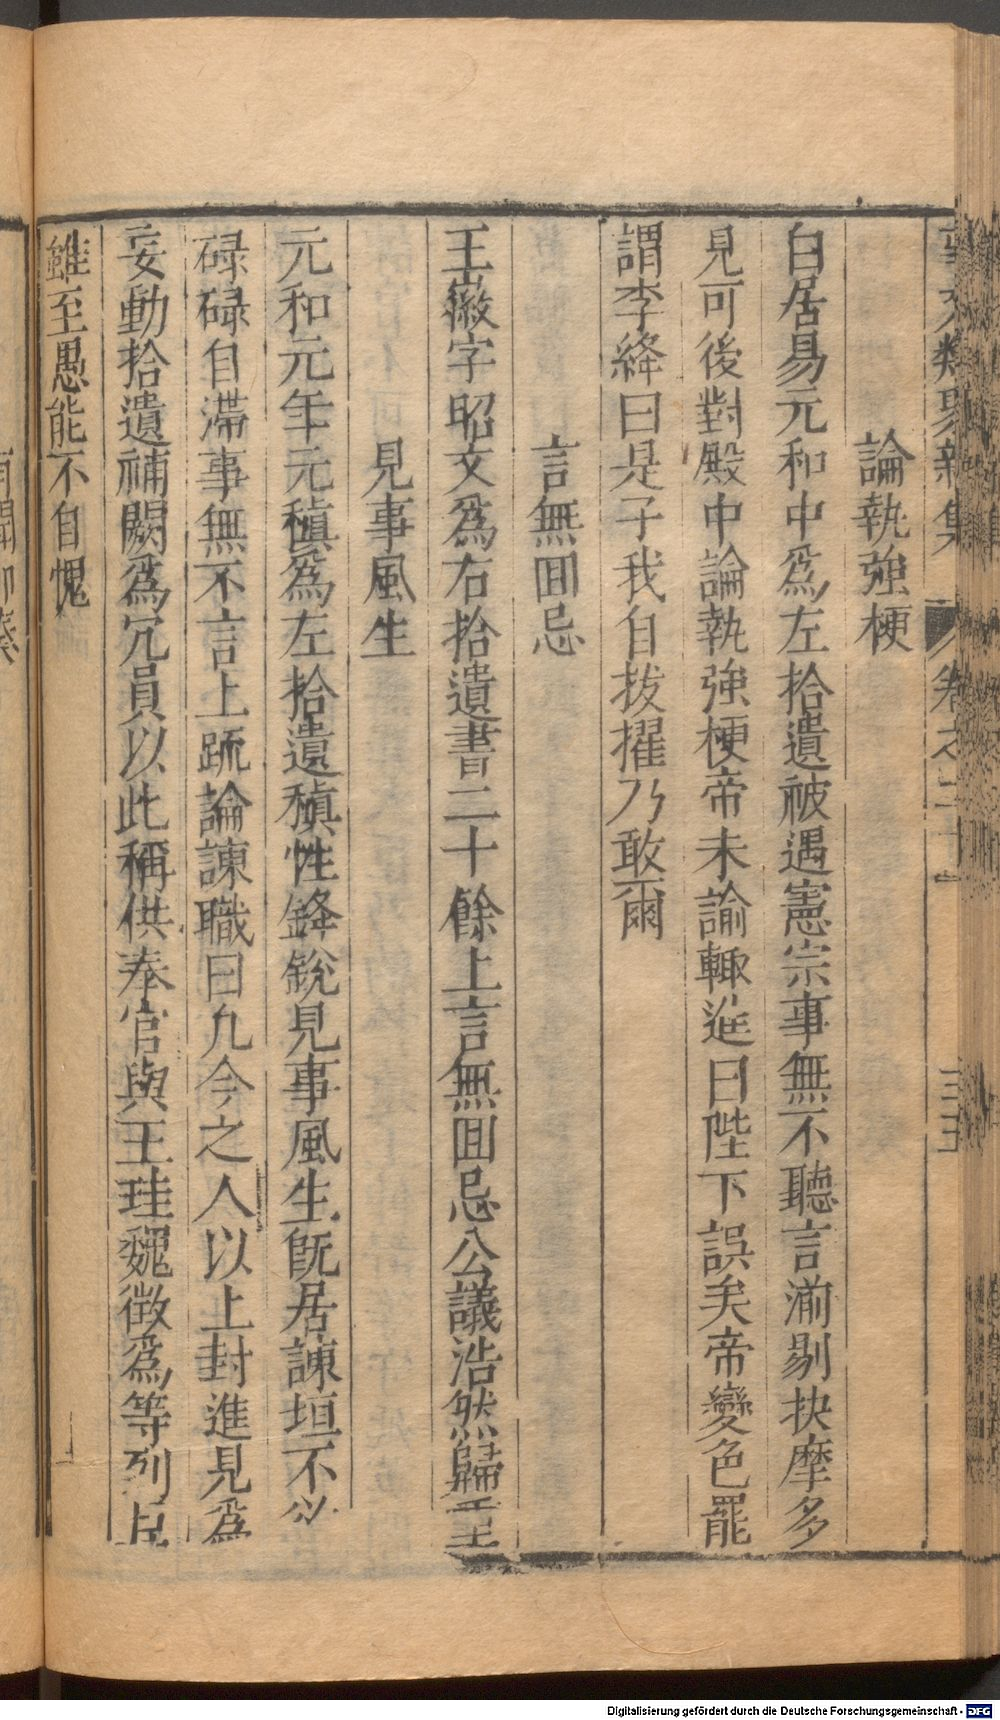 事文類聚新集 卷之二十一
論執強梗
白居易元和中爲左拾遺被遇憲宗事無不聽言湔剔抉摩多
見可後對殿中論執強梗帝未諭輙進曰陛下誤矣帝變色罷
謂李絳曰是子我自拔擢乃敢爾
言無囬忌
王嶶字昭文爲右拾遺書二十餘上言無囬忌公議浩然歸重
見事風生
元和元年元稹爲左拾遺稹性鋒銳見事風生旣居諫垣不欲
碌碌自滯事無不言上䟽論諫職曰凢今之人以上封進見爲
妄動拾遺補闕爲冗員以此稱供奉官與王珪魏徵爲等列臣
雖至愚能不自愧
Digitalisierung gefördert durch die Deutsche Forschungsgemeinschaft - DFG